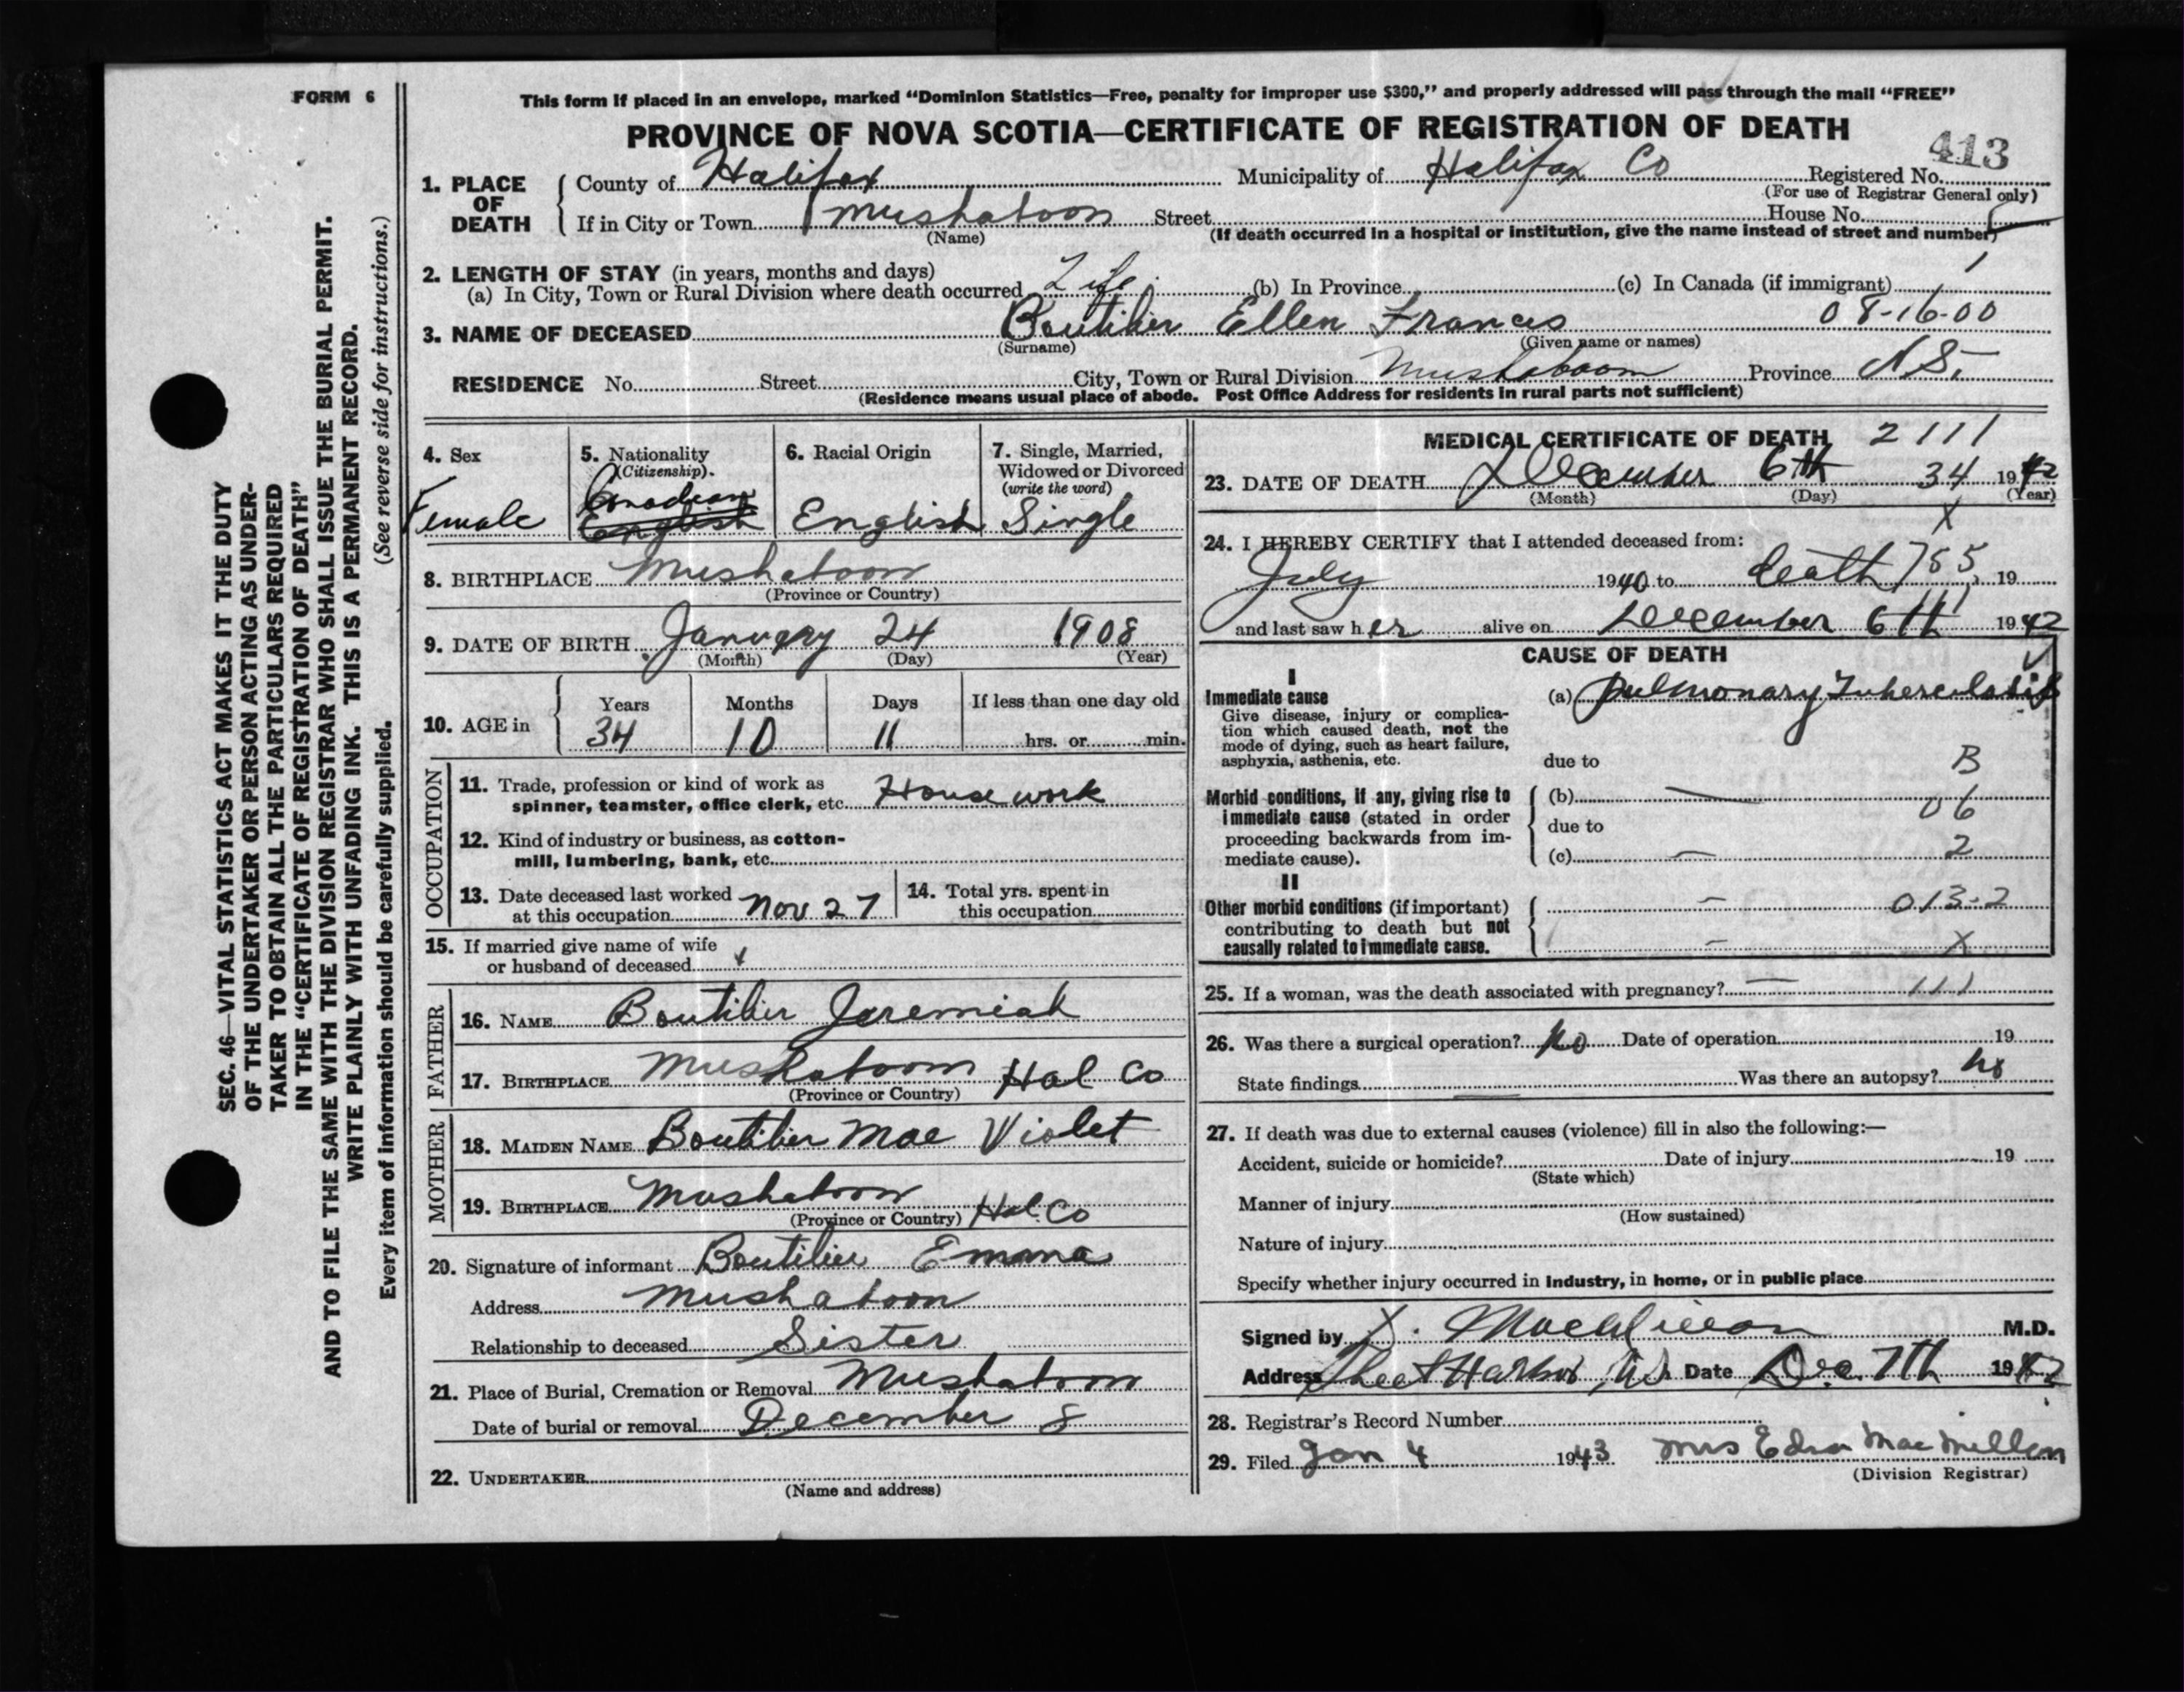 FORM 6
This form if placed in an envelope, marked “Dominion Statistics—Free, penalty for improper use $300,” and properly addressed will pass through the mail “FREE”
PROVINCE OF NOVA SCOTIA—CERTIFICATE OF REGISTRATION OF DEATH
413
1. PLACE OF DEATH
County of Halifax Municipality of Halifax Co Registered No.
(For use of Registrar General only)
If in City or Town Mushaboon Street House No.
(Name) (If death occurred in a hospital or institution, give the name instead of street and number)
2. LENGTH OF STAY (in years, months and days)
(a) In City, Town or Rural Division where death occurred Life (b) In Province (c) In Canada (if immigrant) 1
3. NAME OF DECEASED Boutilier Ellen Frances 08-16-00
(Surname) (Given name or names)
RESIDENCE No. Street City, Town or Rural Division Mushaboom Province N.S.
(Residence means usual place of abode. Post Office Address for residents in rural parts not sufficient)
4. Sex Female
5. Nationality (Citizenship) Canadian English
6. Racial Origin English
7. Single, Married, Widowed or Divorced (write the word) Single
8. BIRTHPLACE Mushaboon
(Province or Country)
9. DATE OF BIRTH January 24 1908
(Month) (Day) (Year)
10. AGE in Years 34 Months 10 Days 11 If less than one day old hrs. or min.
OCCUPATION
11. Trade, profession or kind of work as
spinner, teamster, office clerk, etc. House work
12. Kind of industry or business, as cotton-
mill, lumbering, bank, etc.
13. Date deceased last worked
at this occupation Nov 27
14. Total yrs. spent in
this occupation
15. If married give name of wife
or husband of deceased
FATHER
16. NAME Boutilier Jeremiah
17. BIRTHPLACE Mushaboom Hal Co
(Province or Country)
MOTHER
18. MAIDEN NAME Boutilier Mae Violet
19. BIRTHPLACE Mushaboon Hal. Co
(Province or Country)
20. Signature of informant Boutilier Emma
Address Mushaboon
Relationship to deceased Sister
21. Place of Burial, Cremation or Removal Mushaboom
Date of burial or removal December 8
22. UNDERTAKER
(Name and address)
MEDICAL CERTIFICATE OF DEATH 2111
23. DATE OF DEATH December 6th 34 1942
(Month) (Day) (Year)
X
24. I HEREBY CERTIFY that I attended deceased from:
July 1940 to death 755 19
111
and last saw her alive on December 6th 1942
CAUSE OF DEATH
I
Immediate cause (a) Pulmonary Tuberculosis
Give disease, injury or complica-
tion which caused death, not the
mode of dying, such as heart failure,
asphyxia, asthenia, etc. due to B
Morbid conditions, if any, giving rise to (b) —
immediate cause (stated in order due to 06
proceeding backwards from im-
mediate cause). (c) — 2
II
Other morbid conditions (if important) — 013-2
contributing to death but not
causally related to immediate cause. — X
25. If a woman, was the death associated with pregnancy? — 111
26. Was there a surgical operation? No Date of operation 19
State findings Was there an autopsy? No
27. If death was due to external causes (violence) fill in also the following:—
Accident, suicide or homicide? Date of injury 19
(State which)
Manner of injury
(How sustained)
Nature of injury
Specify whether injury occurred in industry, in home, or in public place
Signed by M.D.
Address Sheet Harbor, N.S. Date Dec. 7th 1942
28. Registrar’s Record Number
29. Filed Jan 4 1943 Mrs Edna MacMillan
(Division Registrar)
SEC. 46—VITAL STATISTICS ACT MAKES IT THE DUTY
OF THE UNDERTAKER OR PERSON ACTING AS UNDER-
TAKER TO OBTAIN ALL THE PARTICULARS REQUIRED
IN THE “CERTIFICATE OF REGISTRATION OF DEATH”
AND TO FILE THE SAME WITH THE DIVISION REGISTRAR WHO SHALL ISSUE THE BURIAL PERMIT.
WRITE PLAINLY WITH UNFADING INK. THIS IS A PERMANENT RECORD.
Every item of information should be carefully supplied. (See reverse side for instructions.)